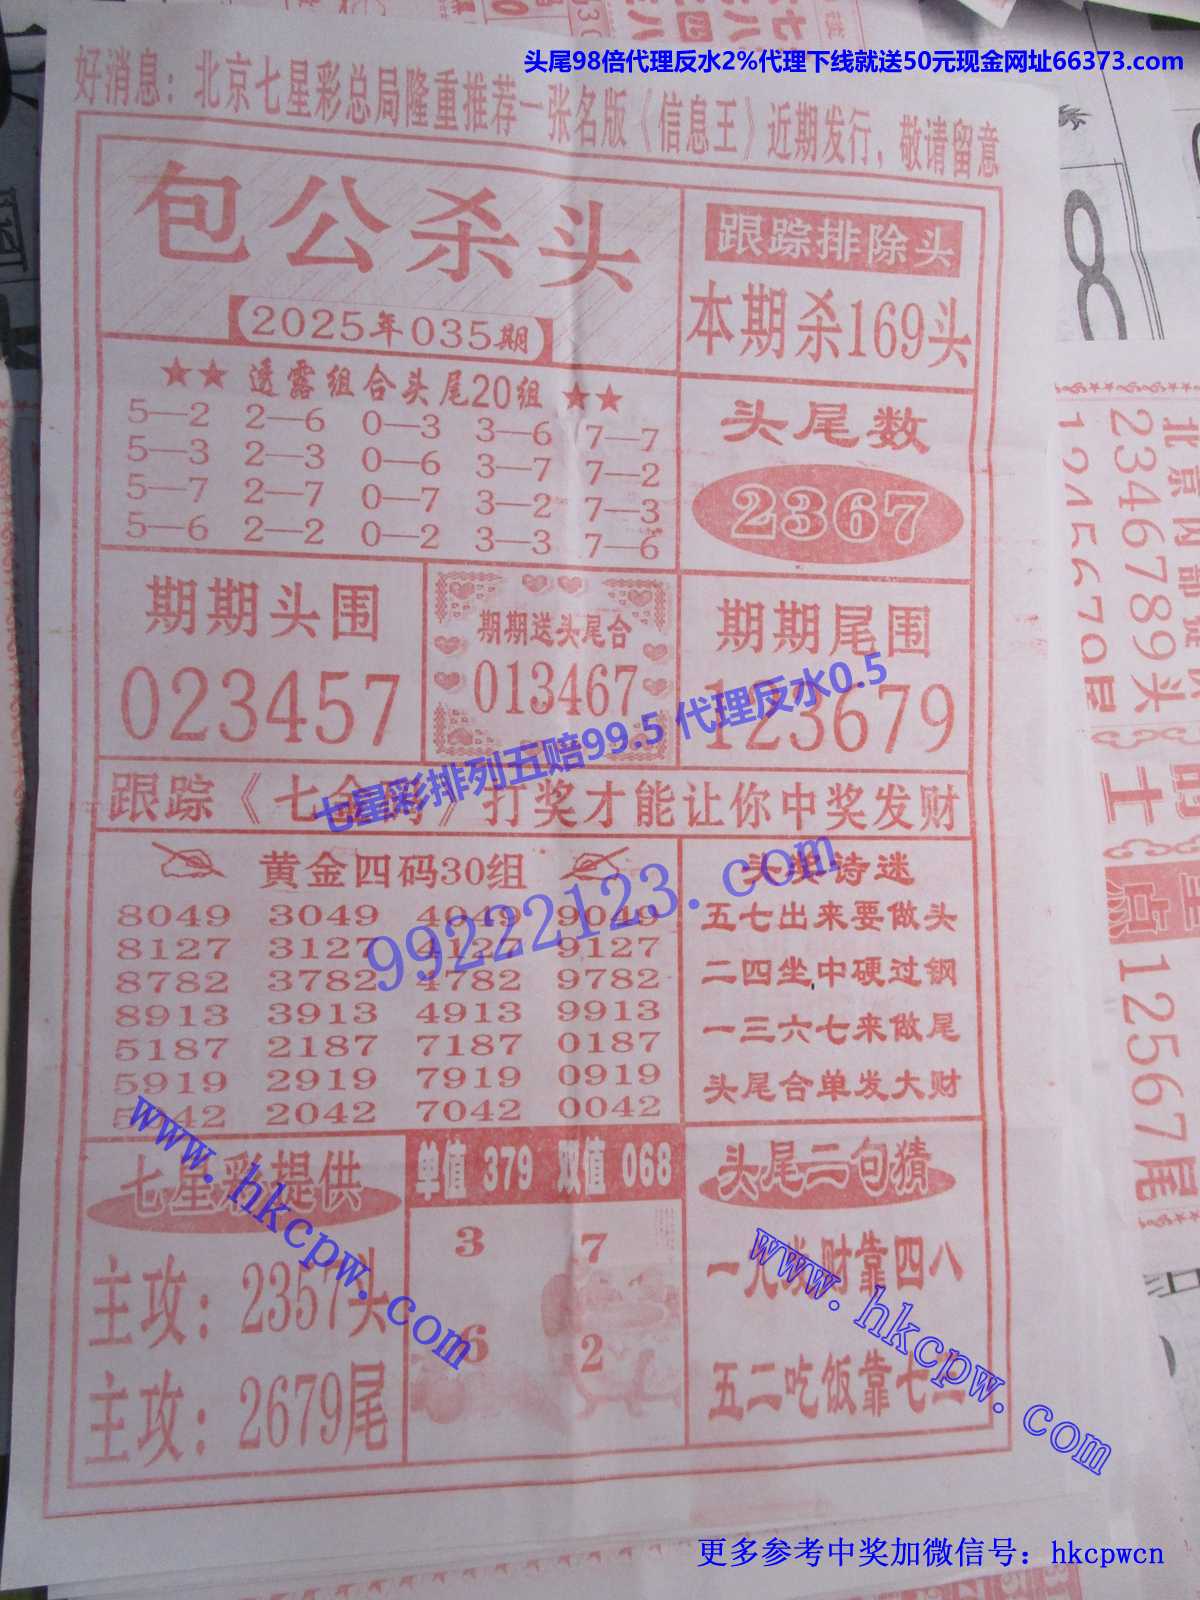 头尾98倍代理反水2%代理下线就送50元现金网址66373.com
好消息：北京七星彩总局隆重推荐一张名版《信息王》近期发行，敬请留意
包公杀头
【2025年035期】
跟踪排除头
本期杀169头
★★透露组合头尾20组★★
5—2 2—6 0—3 3—6 7—7
5—3 2—3 0—6 3—7 7—2
5—7 2—7 0—7 3—2 7—3
5—6 2—2 0—2 3—3 7—6
头尾数
2367
期期头围
023457
期期送头尾合
013467
期期尾围
123679
七星彩排列五赔99.5 代理反水0.5
跟踪《七 》打奖才能让你中奖发财
99222123.com
黄金四码30组
8049 3049 4049 9049
8127 3127 4127 9127
8782 3782 4782 9782
8913 3913 4913 9913
5187 2187 7187 0187
5919 2919 7919 0919
5042 2042 7042 0042
头奖诗迷
五七出来要做头
二四坐中硬过钢
一三六七来做尾
头尾合单发大财
七星彩提供
主攻：2357头
主攻：2679尾
www.hkcpw.com
单值 379 双值 068
3 7
6 2
头尾二句猜
一元 财靠四八
五二吃饭靠七
www.hkcpw.com
北京内部
2346789头
1945670尾
12567尾
更多参考中奖加微信号：hkcpwcn